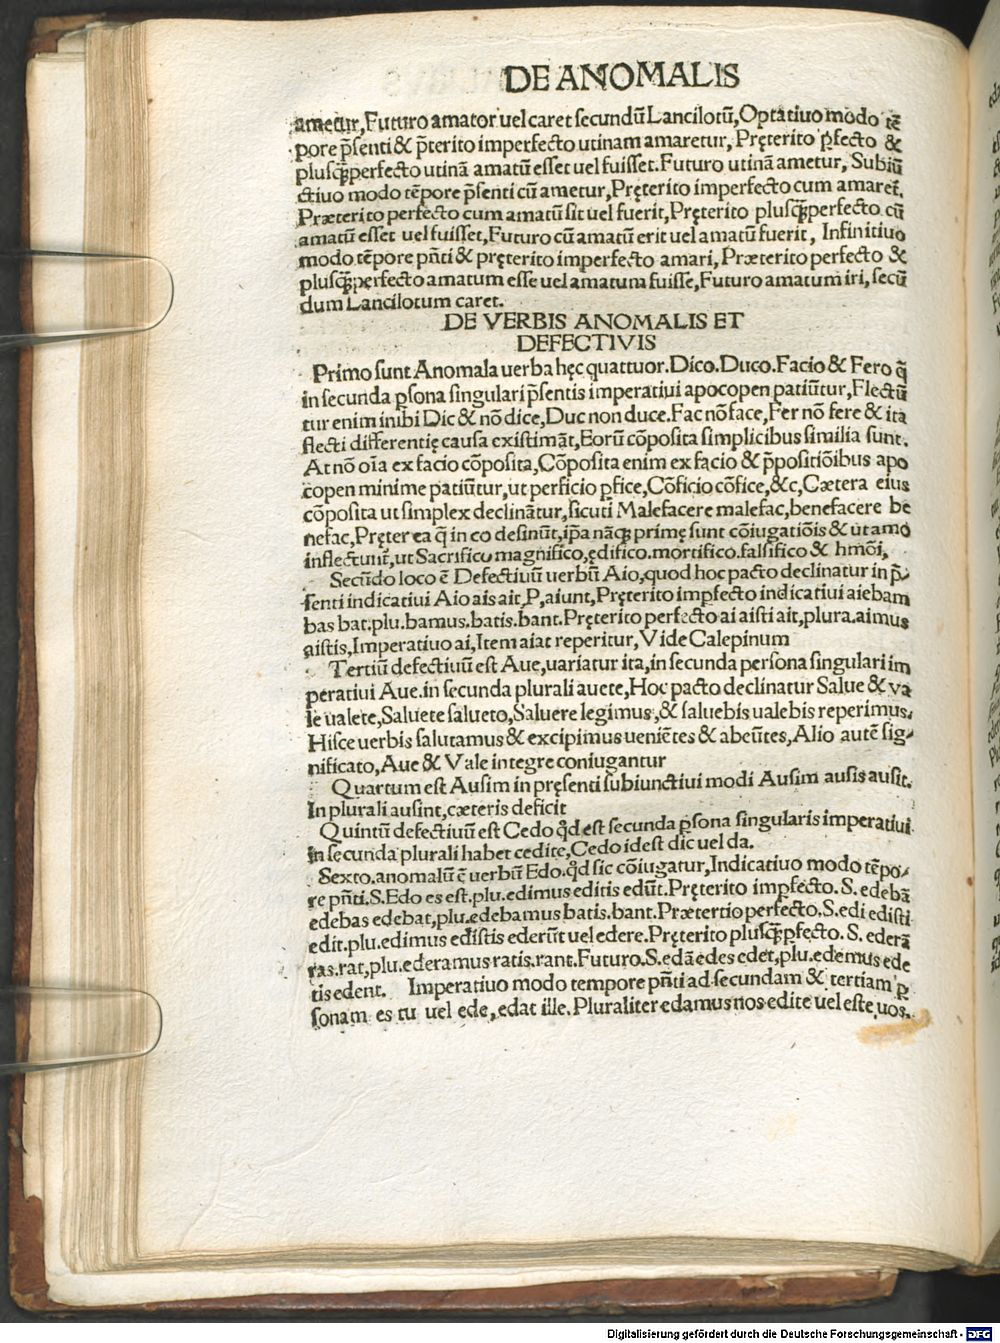 DE ANOMALIS
ametur,Futuro amator uel caret secundũ Lancilotũ,Optatiuo modo tẽ
pore p̃senti & p̃terito imperfecto utinam amaretur, Pręterito ꝑfecto &
plusq̃perfecto utinã amatũ esset uel fuisset.Futuro utinã ametur, Subiũ
ctiuo modo tẽpore p̃senti cũ ametur,Pręterito imperfecto cum amaret̃.
Præterito perfecto cum amatũ sit uel fuerit,Pręterito plusq̃perfecto cũ
amatũ esset uel fuisset,Futuro cũ amatũ erit uel amatũ fuerit, Infinitiuo
modo tẽpore pñti & pręterito imperfecto amari, Præterito perfecto &
plusq̃perfecto amatum esse uel amatum fuisse,Futuro amatum iri, secũ
dum Lancilotum caret.
DE VERBIS ANOMALIS ET
DEFECTIVIS
Primo sunt Anomala uerba hęc quattuor.Dico.Duco.Facio & Fero q̃
in secunda ꝑsona singulari p̃sentis imperatiui apocopen patiũtur,Flectũ
tur enim inibi Dic & nõ dice, Duc non duce. Fac nõ face, Fer nõ fere & ita
flecti differentię causa existimãt, Eorũ cõposita simplicibus similia sunt.
At nõ oĩa ex facio cõposita,Cõposita enim ex facio & p̃positiõibus apo
copen minime patiũtur,ut perficio ꝑfice,Cõficio cõfice,&c,Cætera eius
cõposita ut simplex declinãtur,sicuti Malefacere malefac,benefacere be
nefac,Pręter ea q̃ in co desinũt,ip̃a nãq; primę sunt cõiugatiõis & ut amo
inflectunt̃,ut Sacrifico magnifico,ędifico.mortifico.falsifico & hmõi,
Secũdo loco ẽ Defectiuũ uerbũ Aio,quod hoc pacto declinatur in p̃-
senti indicatiui Aio ais ait, P,aiunt,Pręterito impfecto indicatiui aiebam
bas bat.plu.bamus.batis.bant.Pręterito perfecto ai aisti ait,plura.aimus
aistis,Imperatiuo ai,Item aiat reperitur, Vide Calepinum
Tertiũ defectiuũ est Aue,uariatur ita,in secunda persona singulari im
peratiui Aue.in secunda plurali auete,Hoc pacto declinatur Salue & va
le ualete,Saluete salueto,Saluere legimus,& saluebis ualebis reperimus.
Hisce uerbis salutamus & excipimus ueniẽtes & abeũtes,Alio autẽ sig-
nificato, Aue & Vale integre coniugantur
Quartum est Ausim in pręsenti subiunctiui modi Ausim ausis ausit.
In plurali ausint,cæteris deficit
Quintũ defectiuũ est Cedo qd̃ est secunda ꝑsona singularis imperatiui
in secunda plurali habet cedite,Cedo idest dic uel da.
Sexto.anomalũ ẽ uerbũ Edo.qd̃ sic cõiugatur,Indicatiuo modo tẽpo-
re pñti.S.Edo es est.plu.edimus editis edũt.Pręterito impfecto. S. edebã
edebas edebat,plu.edebamus batis.bant.Prætertio perfecto.S.edi edisti
edit.plu.edimus edistis ederũt uel edere.Pręterito plusq̃ꝑfecto. S. ederã
ras.rat,plu.ederamus ratis.rant. Futuro.S.edã edes edet,plu.edemus ede
tis edent. Imperatiuo modo tempore pñti ad secundam & tertiam ꝑ
sonam es tu uel ede, edat ille. Pluraliter edamus nos edite uel este,uos.
Digitalisierung gefördert durch die Deutsche Forschungsgemeinschaft - DFG